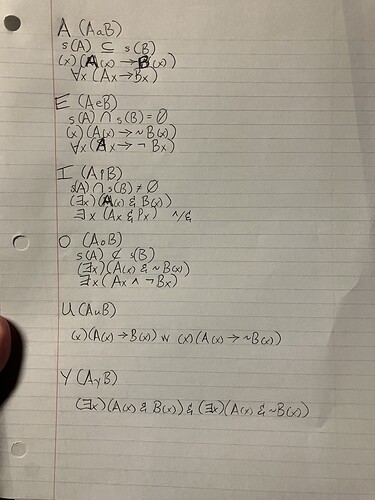 A (AaB)
s(A) ⊆ s(B)
(x)(A(x) → B(x))
∀x (Ax → Bx)
E (AeB)
s(A) ∩ s(B) = ∅
(x)(A(x) → ~B(x))
∀x (Ax → ¬ Bx)
I (AiB)
s(A) ∩ s(B) ≠ ∅
(∃x)(A(x) & B(x))
∃x (Ax & Px) ^/&
O (AoB)
s(A) ⊄ s(B)
(∃x)(A(x) & ~B(x))
∃x (Ax ∧ ¬Bx)
U (AuB)
(x)(A(x) → B(x)) w (x)(A(x) → ~B(x))
Y (AyB)
(∃x)(A(x) & B(x)) & (∃x)(A(x) & ~B(x))